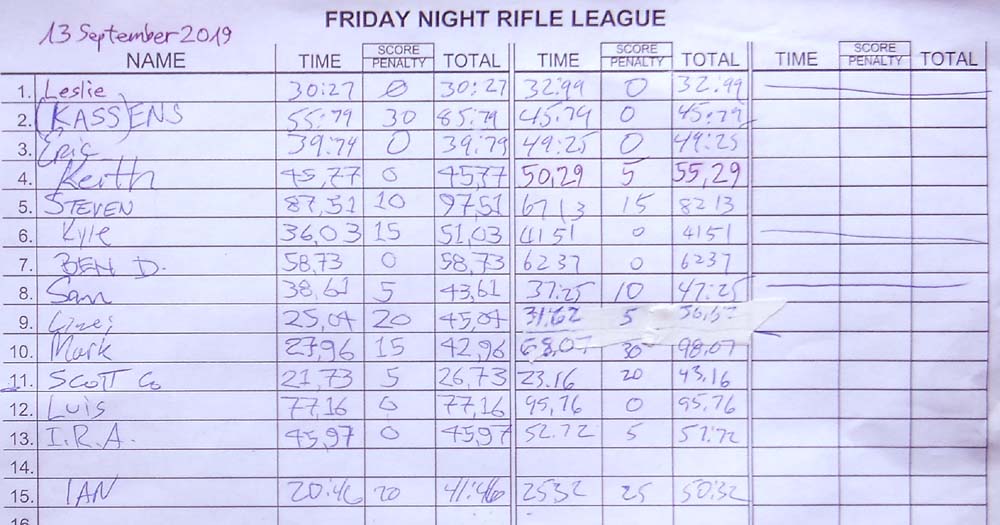 FRIDAY NIGHT RIFLE LEAGUE
13 September 2019
NAME TIME SCORE PENALTY TOTAL TIME SCORE PENALTY TOTAL TIME SCORE PENALTY TOTAL
1. Leslie 30:27 0 30:27 32:99 0 32:99
2. (KASS)ENS 55:79 30 85:79 45:79 0 45:79
3. Eric 39:79 0 39:79 49:25 0 49:25
4. Keith 45,77 0 45,77 50,29 5 55,29
5. STEVEN 87,51 10 97,51 67 13 15 82 13
6. Kyle 36,03 15 51,03 41 51 0 41 51
7. BEN D. 58,73 0 58,73 62 37 0 62 37
8. Sam 38,61 5 43,61 37:25 10 47:25
9. 25,04 20 45,04 31.62 5
10. Mark 27,96 15 42,96 68,07 30 98,07
11. SCOTT Co 21,73 5 26,73 23.16 20 43,16
12. LUIS 77,16 0 77,16 95,76 0 95,76
13. I.R.A. 45,97 0 45,97 52.72 5 57:72
14.
15. IAN 20:46 20 41:46 25 32 25 50:32
16.